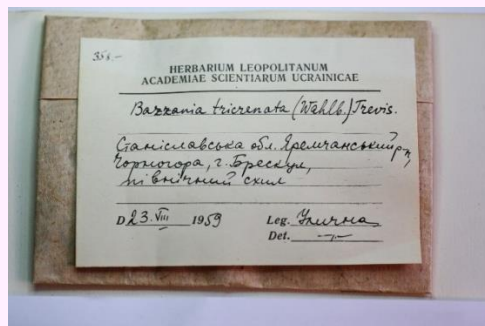 358.-
HERBARIUM LEOPOLITANUM
ACADEMIAE SCIENTIARUM UCRAINICAE
Bazzania tricrenata (Wahlb.) Trevis.
Станіславська обл. Яремчанський р-н,
Чорногора, г. Брескул,
північний схил
D 23. VIII 1959 Leg. Улична
Det. —„—